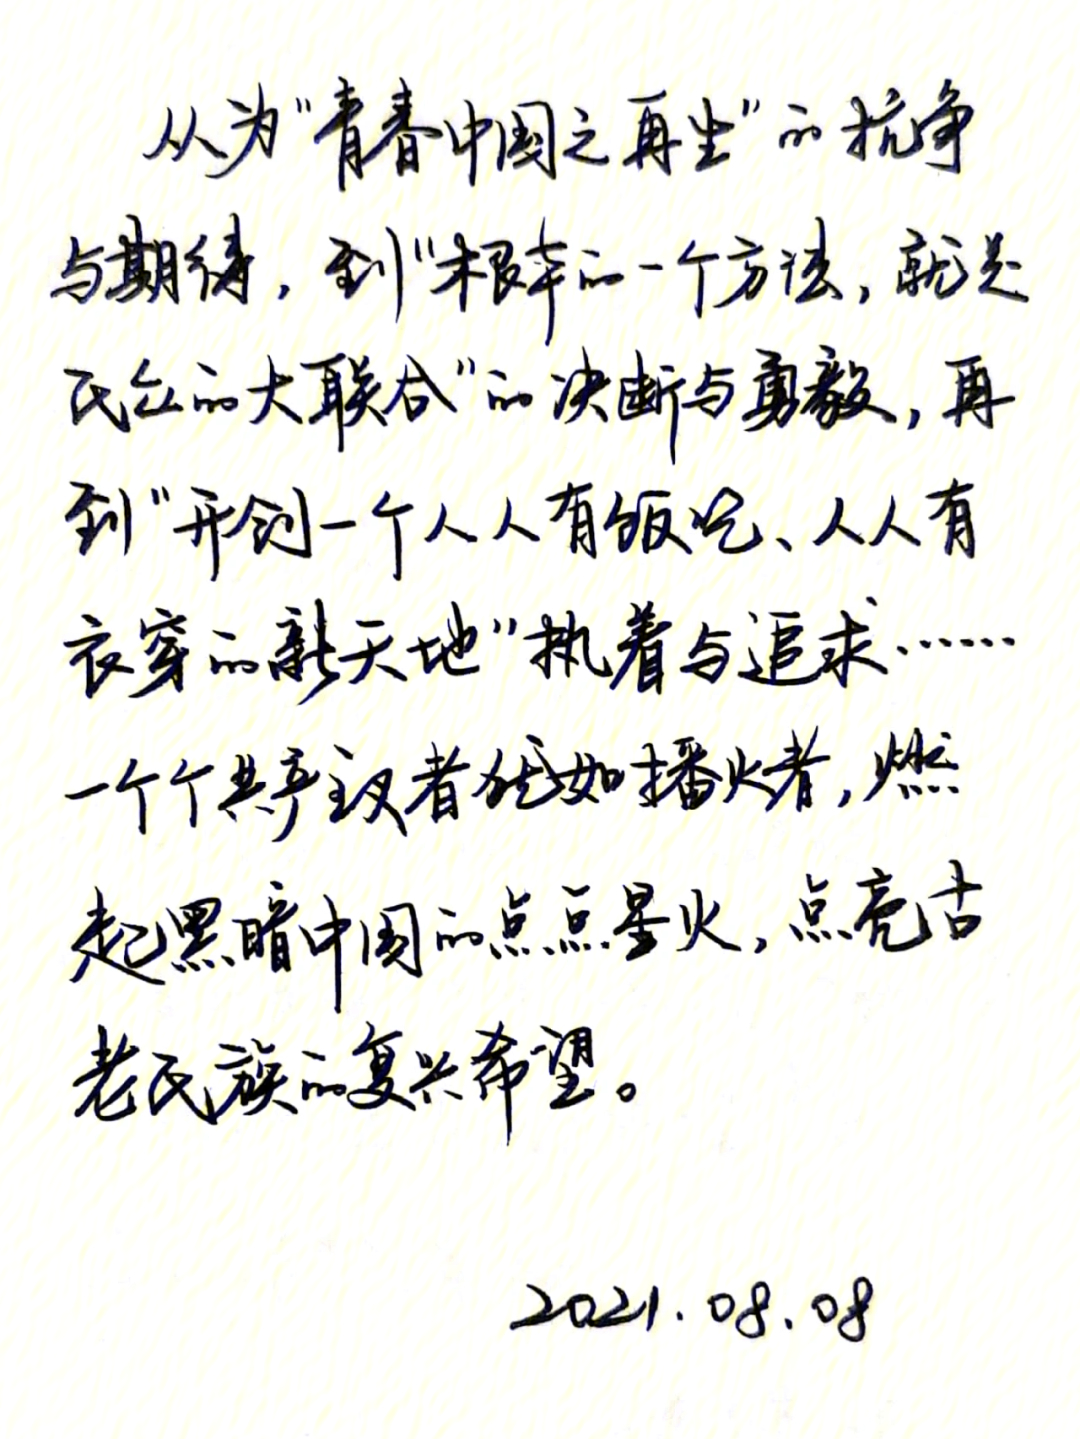 从为"青春中国之再生"的抗争
与期待，到"根本的一个方法，就是
民众的大联合"的决断与勇毅，再
到"开创一个人人有饭吃、人人有
衣穿的新天地"执着与追求……
一个个共产主义者犹如播火者，燃
起黑暗中国的点点星火，点亮古
老民族的复兴希望。
2021.08.08